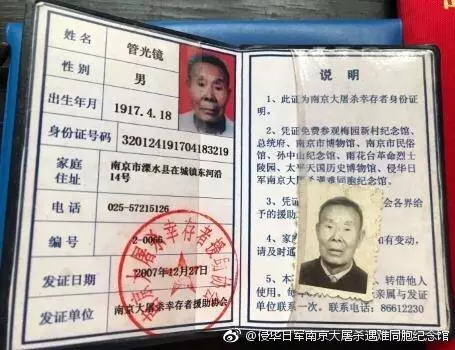 姓名 管光镜
性别 男
出生年月 1917.4.18
身份证号码 320124191704183219
家庭
住址
南京市溧水县在城镇东河沿
14号
电话 025-57215126
编号 2-0066
发证日期 2007年12月27日
发证单位 南京大屠杀幸存者援助协会
说明
1、此证为南京大屠杀幸存者身份证
明。
2、凭证免费参观梅园新村纪念馆、
总统府、南京市博物馆、南京市民俗
馆、孙中山纪念馆、雨花台革命烈士
陵园、太平天国历史博物馆、侵华日
军南京大屠杀遇难同胞纪念馆。
3、凭证
会各界给
予的援助
4、家
有变动,
请及时通
5、本
转借他人
使用。
亲属与发证
单位联系一次。联系电话:86612230
@侵华日军南京大屠杀遇难同胞纪念馆